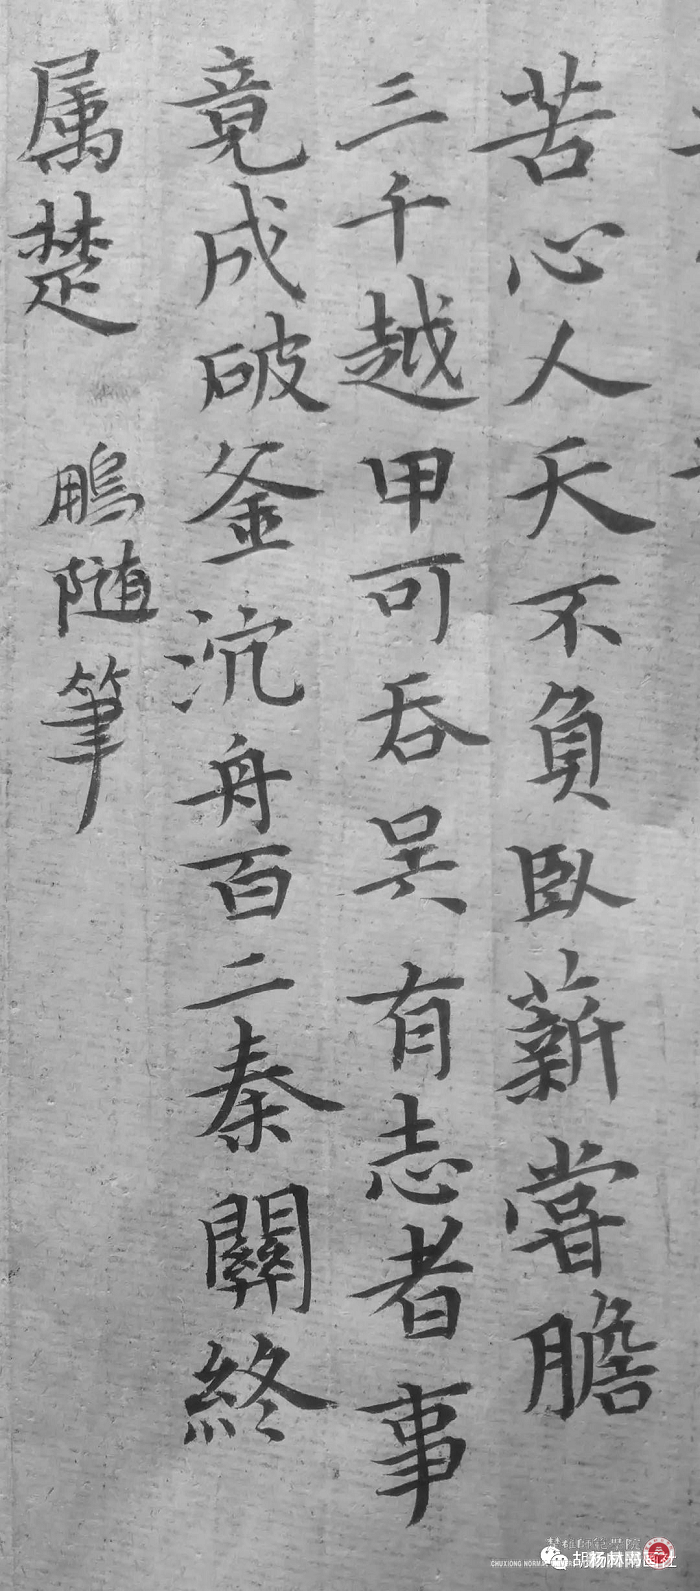 苦心人天不負臥薪嘗膽
三千越甲可吞吴有志者事
竟成破釜沉舟百二秦關終
属楚 鵬随筆
楚雄師範學院
CHUXIONG NORMAL
胡杨林书画社